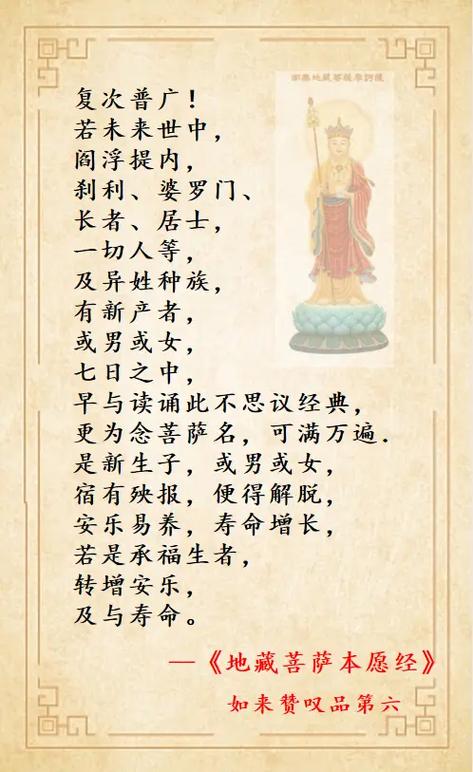 南無地藏菩薩摩訶薩
复次普广！
若未来世中，
阎浮提内，
刹利、婆罗门、
长者、居士，
一切人等，
及异姓种族，
有新产者，
或男或女，
七日之中，
早与读诵此不思议经典，
更为念菩萨名，可满万遍．
是新生子，或男或女，
宿有殃报，便得解脱，
安乐易养，寿命增长，
若是承福生者，
转增安乐，
及与寿命。
—《地藏菩萨本愿经》
如来赞叹品第六